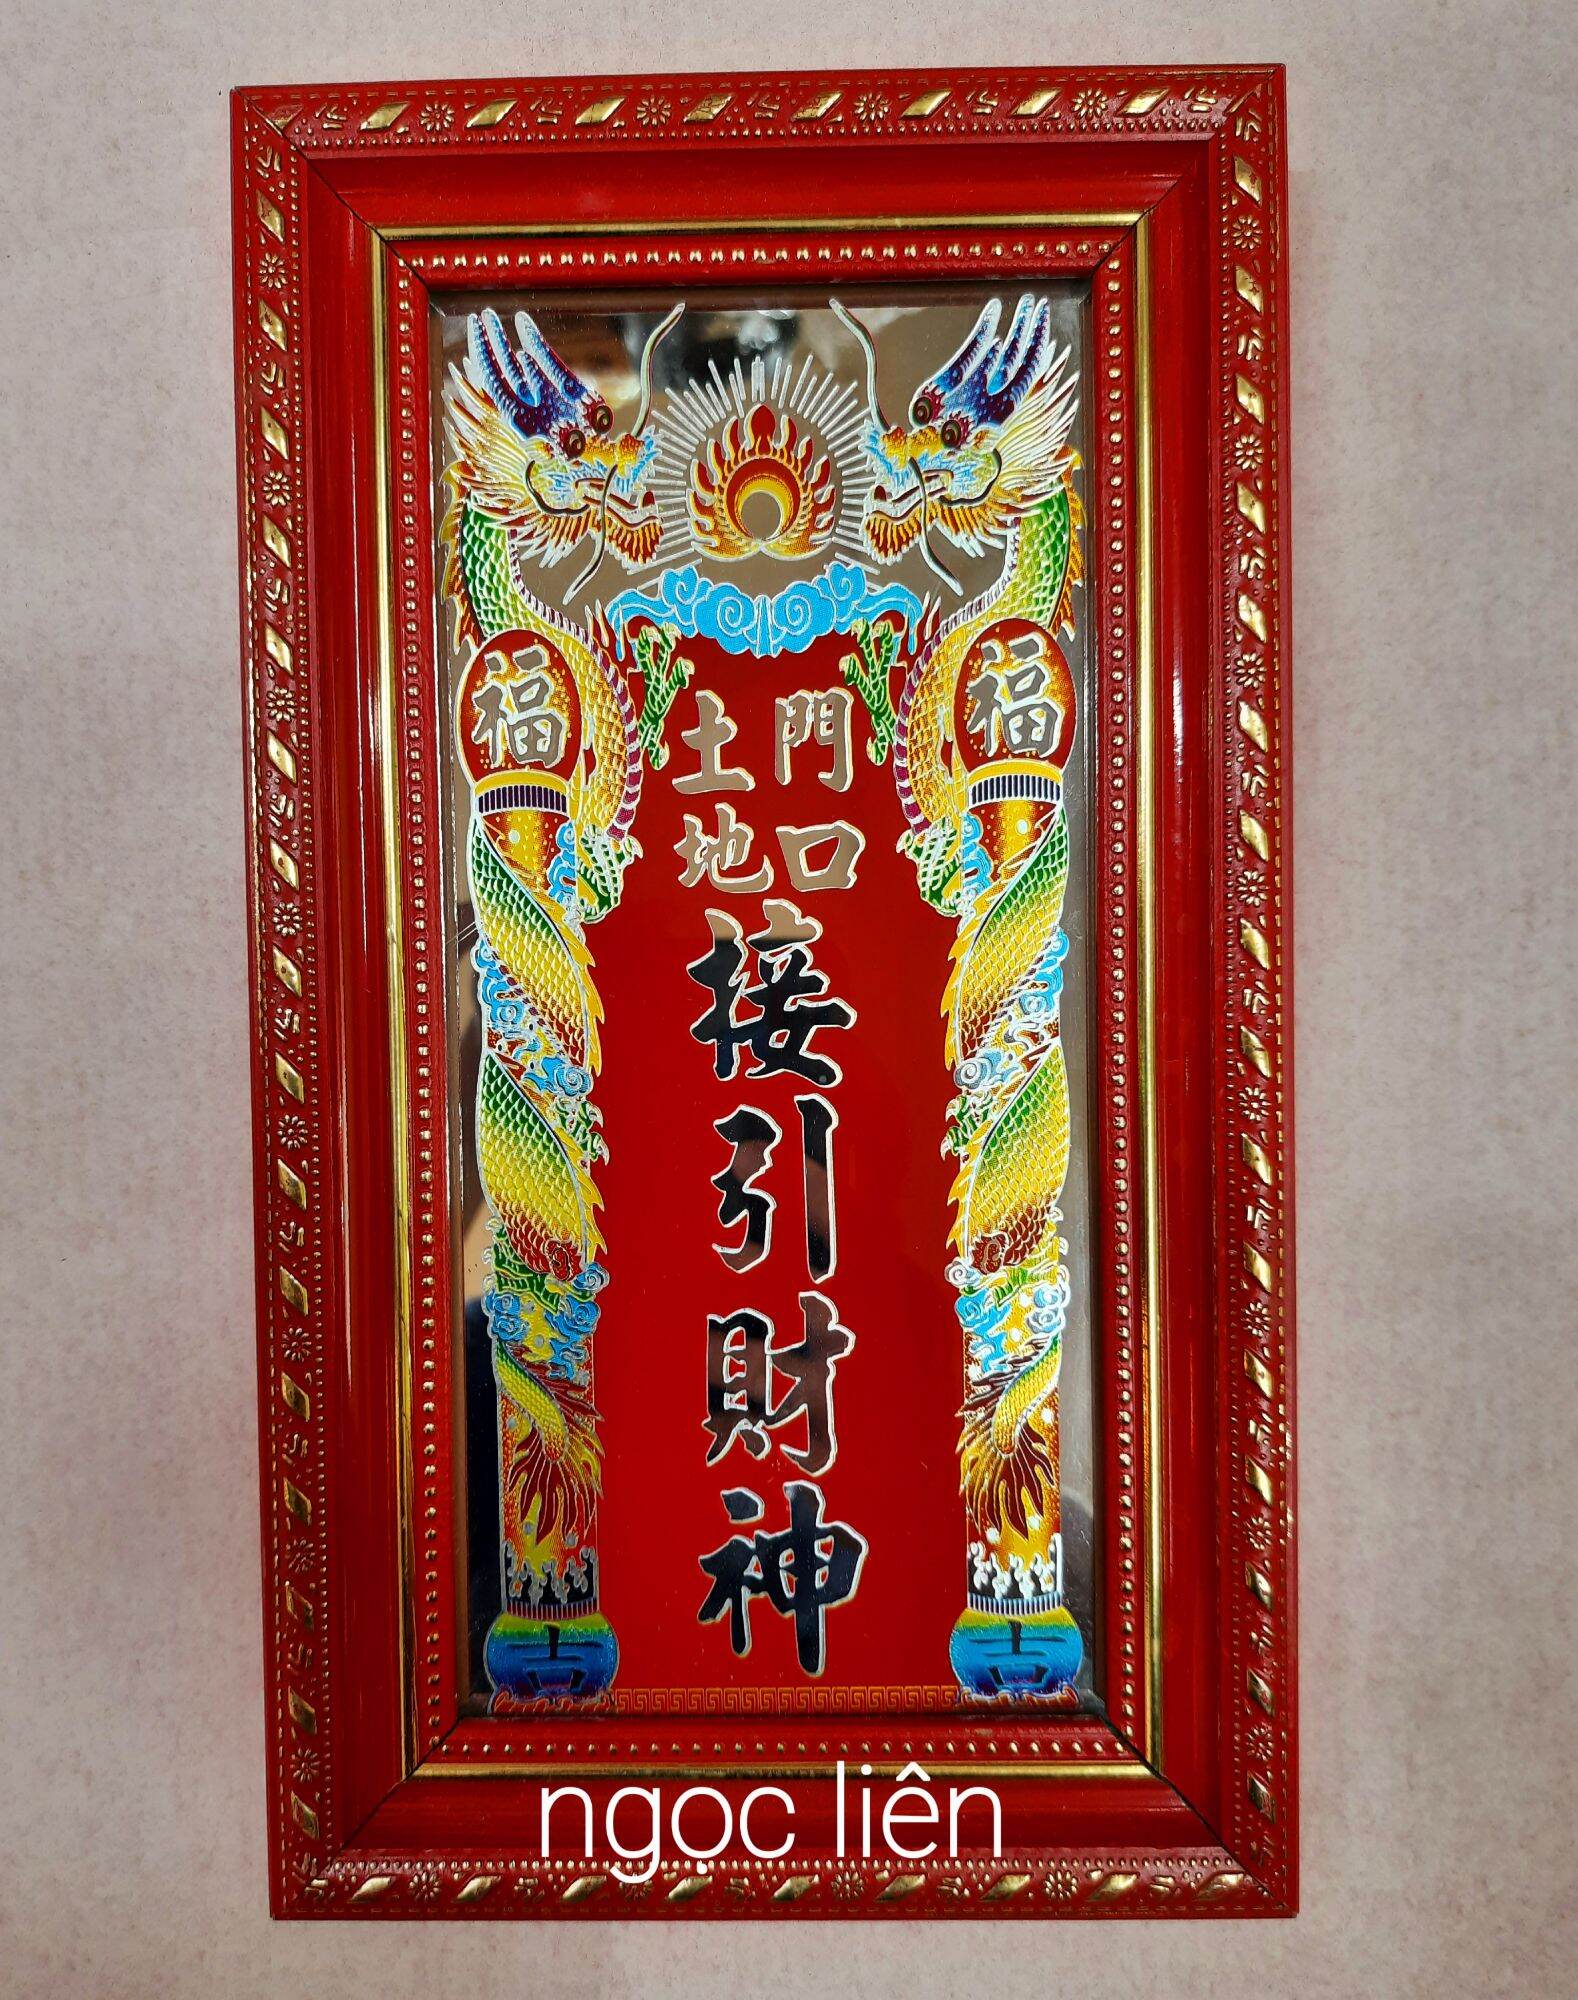 福 福
門口
土地
接引財神
吉 吉
ngọc liên